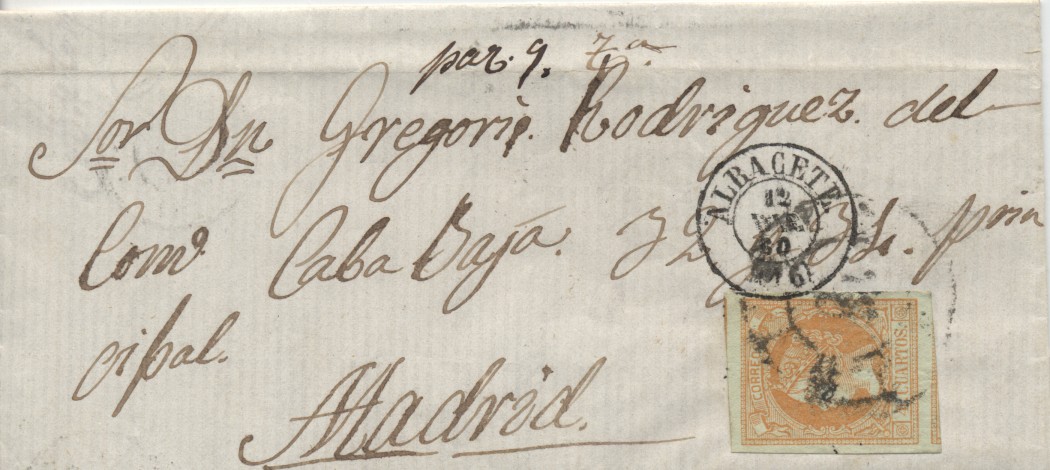 par. 9. 7.a
Sor Dn Gregorio Rodriguez. del
Como. Caba Baja. 32 y 34. prin
cipal.
Madrid.
ALBACETE.
12
60
CORREOS
CUARTOS.